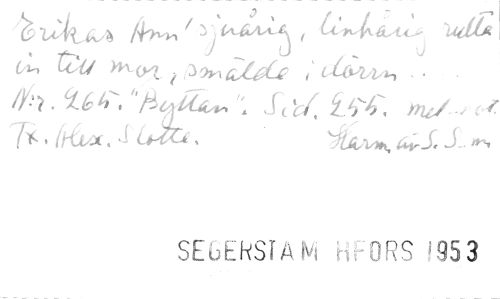 Erikas Ann' sjuårig, linhårig rulta
in till mor, smälde i dörrn .....
N:r. 265. "Byttan". Sid. 255. mel. o. t.
Tx. Alex. Slotte. Harm. av S. S-m
SEGERSTAM HFORS 1953